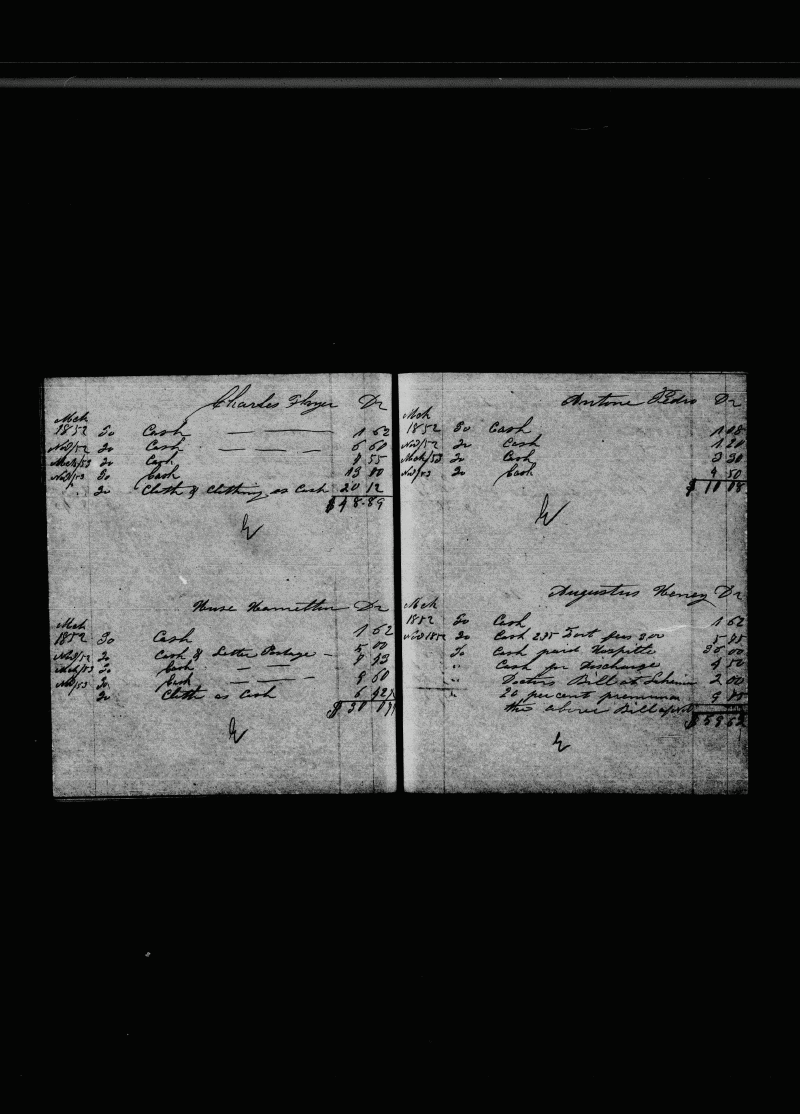 Charles Dr
Mch
1852 To Cash 1 62
Nov/52 To Cash 6 60
Mch/53 To Cash 8 55
Nov/53 To Cash 13 00
" To Cloth & Clothing as Cash 20 12
$ 48.89
Dr
Mch
1852 To Cash 1 62
Nov/52 To Cash & Letter Postage 5 00
Mch/53 To Cash 8 43
Nov/53 To Cash 9 60
To Cloth as Cash 6 42
$
Antone Pedro Dr
Mch
1852 To Cash 1 08
Nov/52 To Cash 1 20
Mch/53 To Cash 3 30
Nov/53 To Cash 4 50
$ 10 08
Augustus Henery Dr
Mch
1852 To Cash 1 62
Nov 1852 To Cash 2.85 fees 3.00 5 85
To Cash paid Hospittle 35 00
" Cash for discharge 4 50
" Doctors Bill at 2 00
" 20 per cent premium 9
the above Bill
$